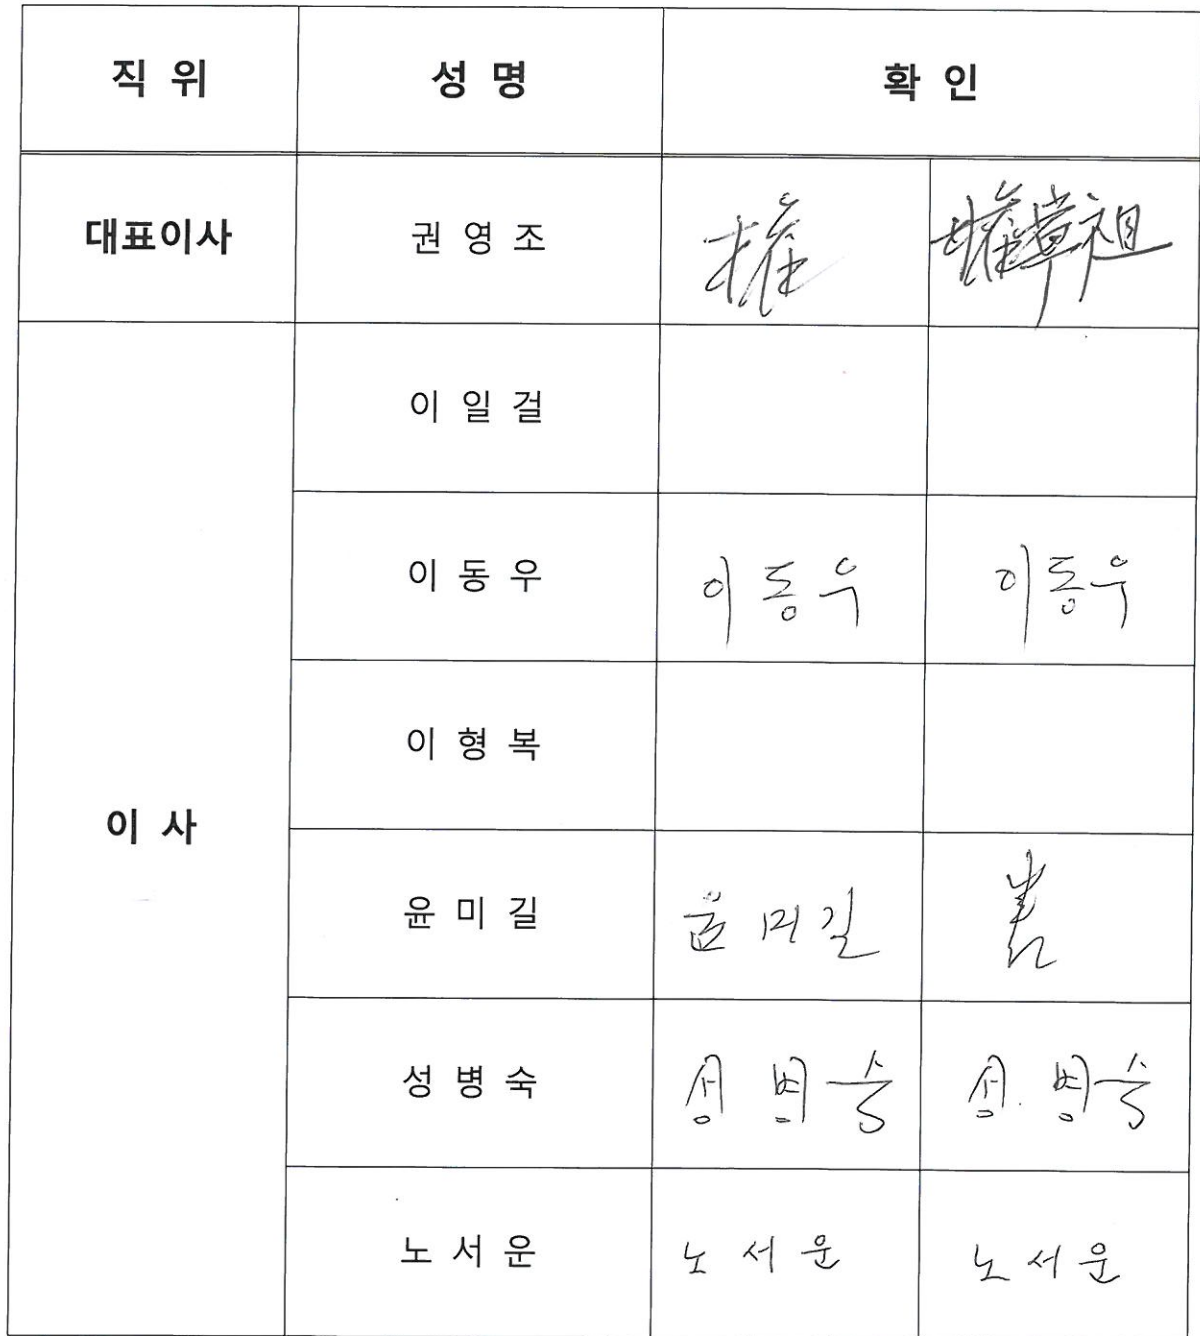 직 위 성 명 확 인
대표이사 권 영 조 權
이 일 걸
이 동 우 이동우 이동우
이 형 복
이 사
윤 미 길 윤미길
성 병 숙 성병숙 성.병숙
노 서 운 노서운 노서운